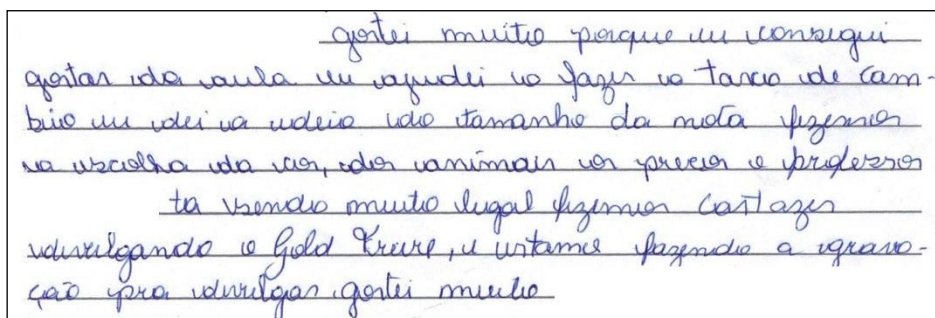 gostei muitio porque eu consegui
gostar da aula eu ajudei o fazer o taxio de Cam-
bio eu dei a ideia do tamanho da nota fizemos
a escolha da cor, dos animais os precos o professor
ta sendo muito legal fizemos Cartazes
divulgando o Gold Freire, e estamos fazendo a grava-
ção pra divulgar, gostei muito